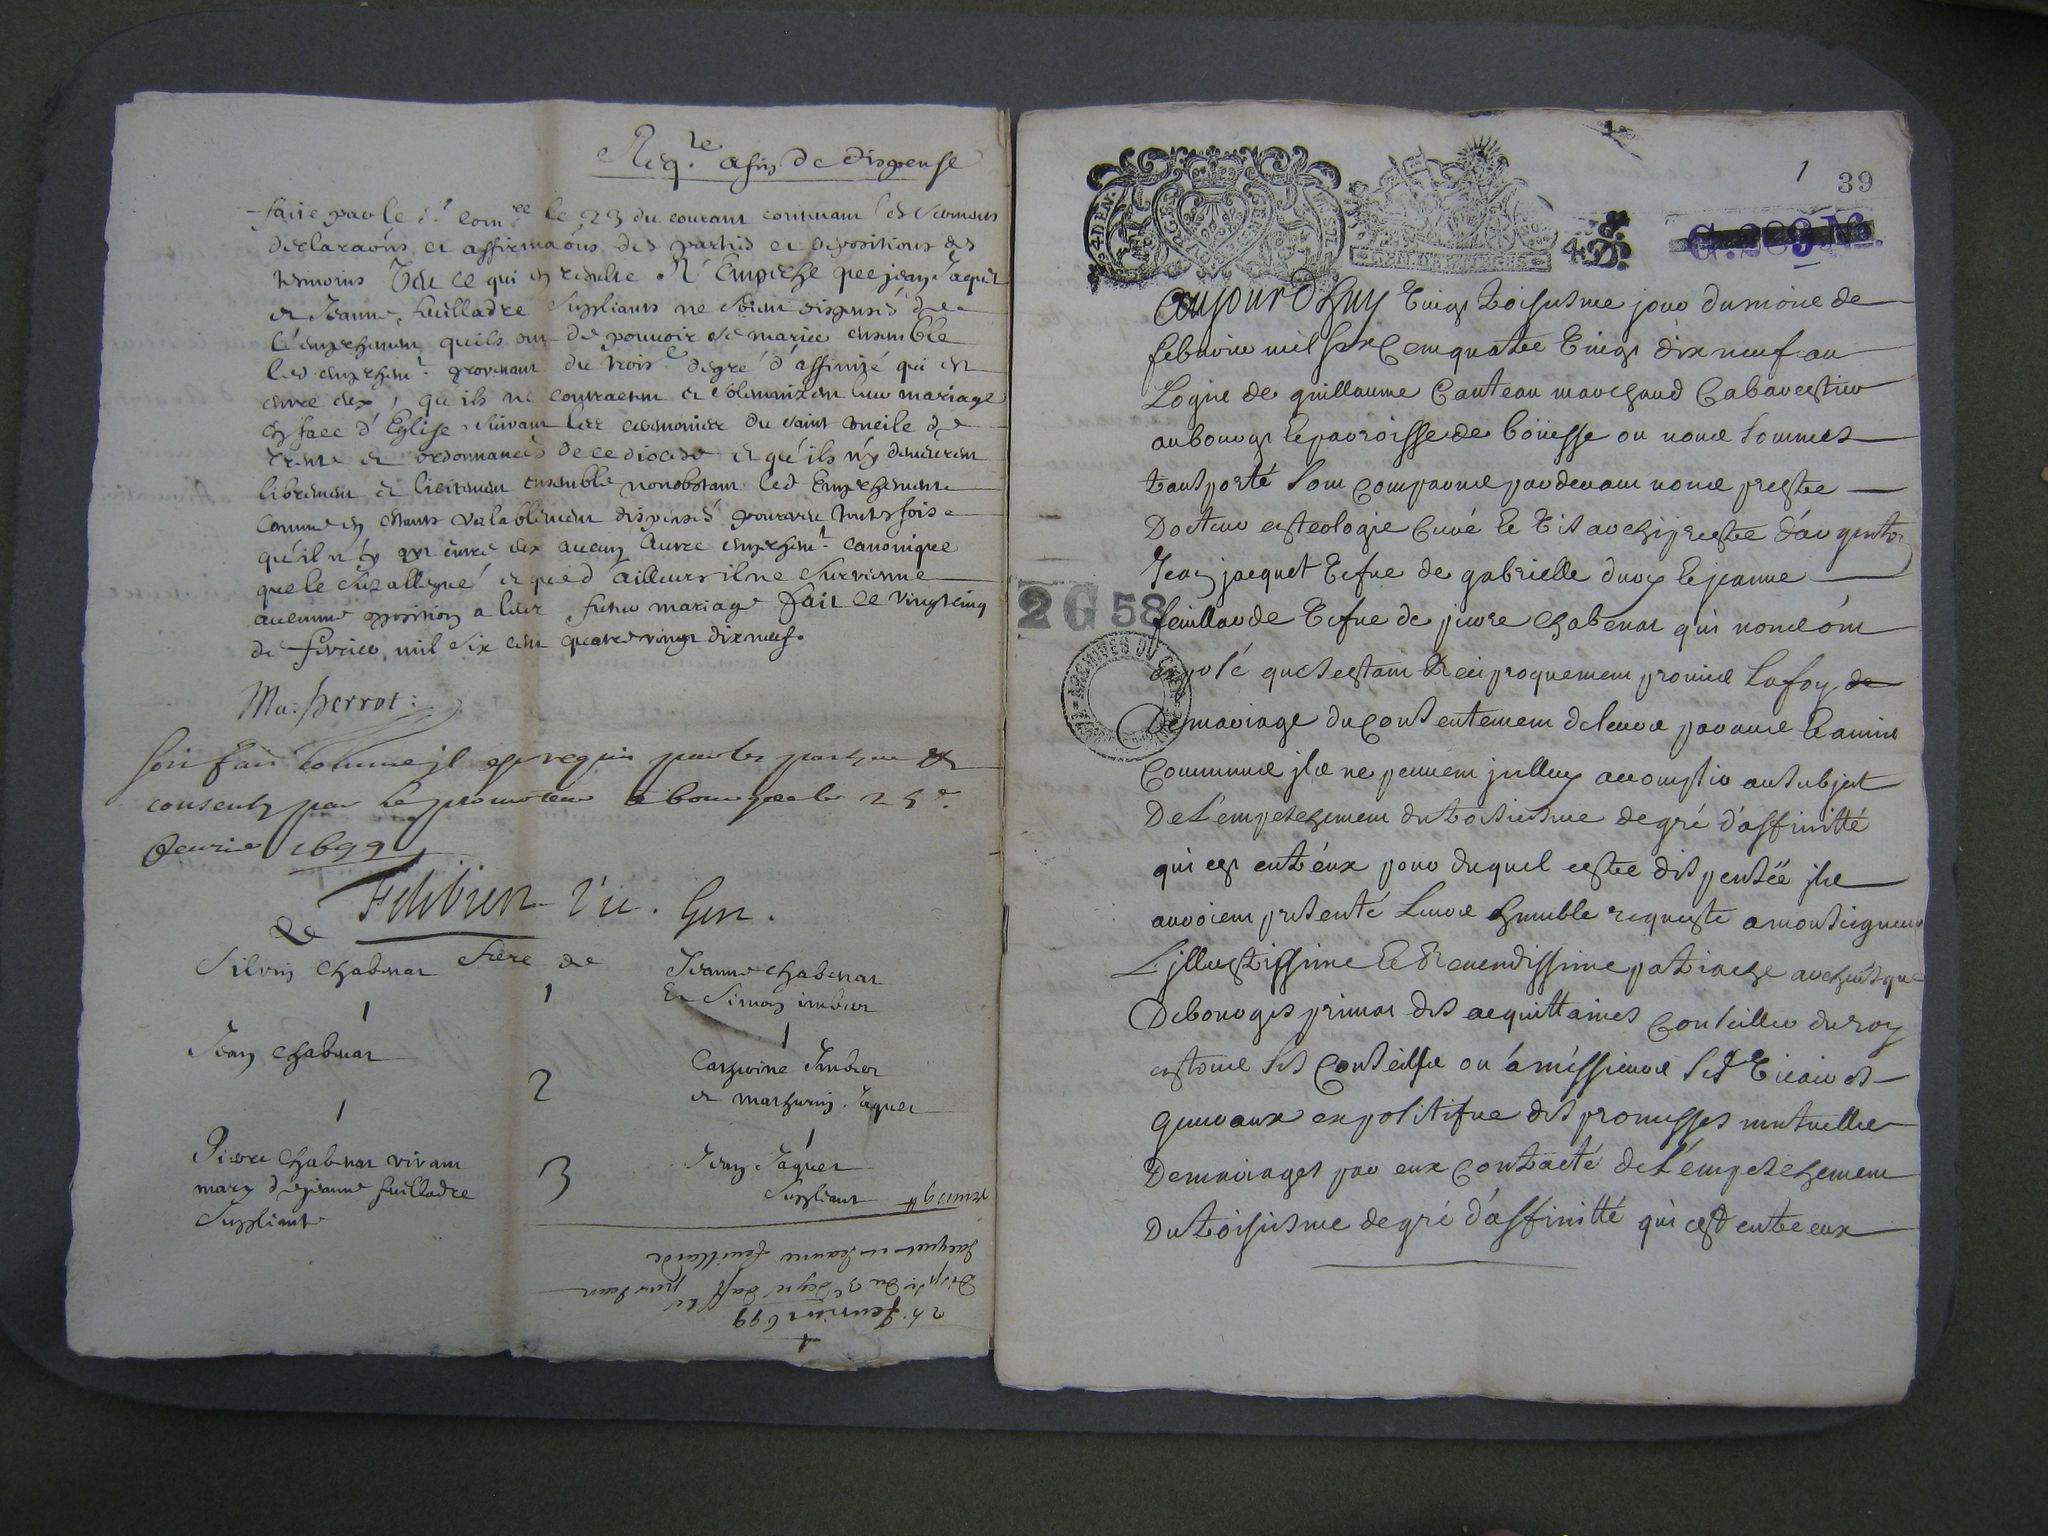 Req.te afin de dispense
faite par le d.t com.re le 23 du courant contenant les sermens
declaraons et affirmaons des parties et depositions des
temoins Veu ce qui en resulte N'Empeche que jean Jaquet
et Jeanne feuilladre supliants ne soient dispensés de
l'empechement quils ont de pouvoir se marier ensemble
led empechem.t provenant du trois.e degré d'affinité qui est
entre eux, qu'ils ne contractent et solemnizent leur mariage
en face d'Eglise suivant les ceremonies du saint Concile de
trente et ordonnances de ce diocese et qu'ils n'y demeurent
librement et licitement ensemble nonobstant led Empechement
comme en etants valablement dispensés pourveu toutesfois
qu'il n'y ayt entre eux aucun autre empechem.t canonique
que le sus allegué et que d'ailleurs il ne survienne
aucune opposition a leur futur mariage fait ce vingt cinq
de fevrier mil six cent quatre vingt dix neuf.
Ma: perrot:
Soit fait comme il est requis par les parties et
consenty par le promoteur a bourges le 25e
fevrier 1699
Felibien Vic. Gen.
de
Silvin Chabenat frere de Jeanne Chabenat
1 Et Simon imbert
Jean Chabenat
2 Catherine Imbert
et mathurin Jaquet
Pierre Chabenat vivant
mary de jeanne feuilladre
Suppliante
3 Jean Jaquet
Suppliant
25 feurier 699
Disp. du 3e degré d'aff.té pour Jean
Jacquet et Jeanne feuillarde
1 39
G. 289 N.o
4 D.
GEN. DE BOURGES
Aujourdhuy Vingt troisiesme jour du moies de
febvrier mil six Cent quatre Vingt dix neuf au
Logis de guillaume Cauteau marchand Cabarestier
au bourg & parroisse de boüesse ou nous sommes
transporté sont comparus pardevant nous prestre
Docteur es teologie curé & Vis archiprestre d'argenton
Jean jacquet Vefue de gabrielle duox & jeanne
feuillarde Vefue de pierre chabenat qui nous ont
exposé que s'estant Reciproquement promis La foy de
De mariage du Consentement de leurs parans & amis
Communs ils ne peuvent icelluy accomplir au subjet
De L'empeschement du troisiesme degré d'affinitté
qui est entr'eux pour duquel estre dispensés ils
auroient presenté Leurs humble requeste a monseigneur
L'jllustrissime & Reverendissime patriache archevesque
De bourges primat des acquittaines Conseiller du roy
en tous ses Conseils ou a messieurs ses Vicaires
generaux expositifue des promesses mutuelles
De mariages par eux Contracté de L'empeschement
Du troisiesme degré d'affinitté qui est entre eux
2 G 58
ARCHIVES DU CHER